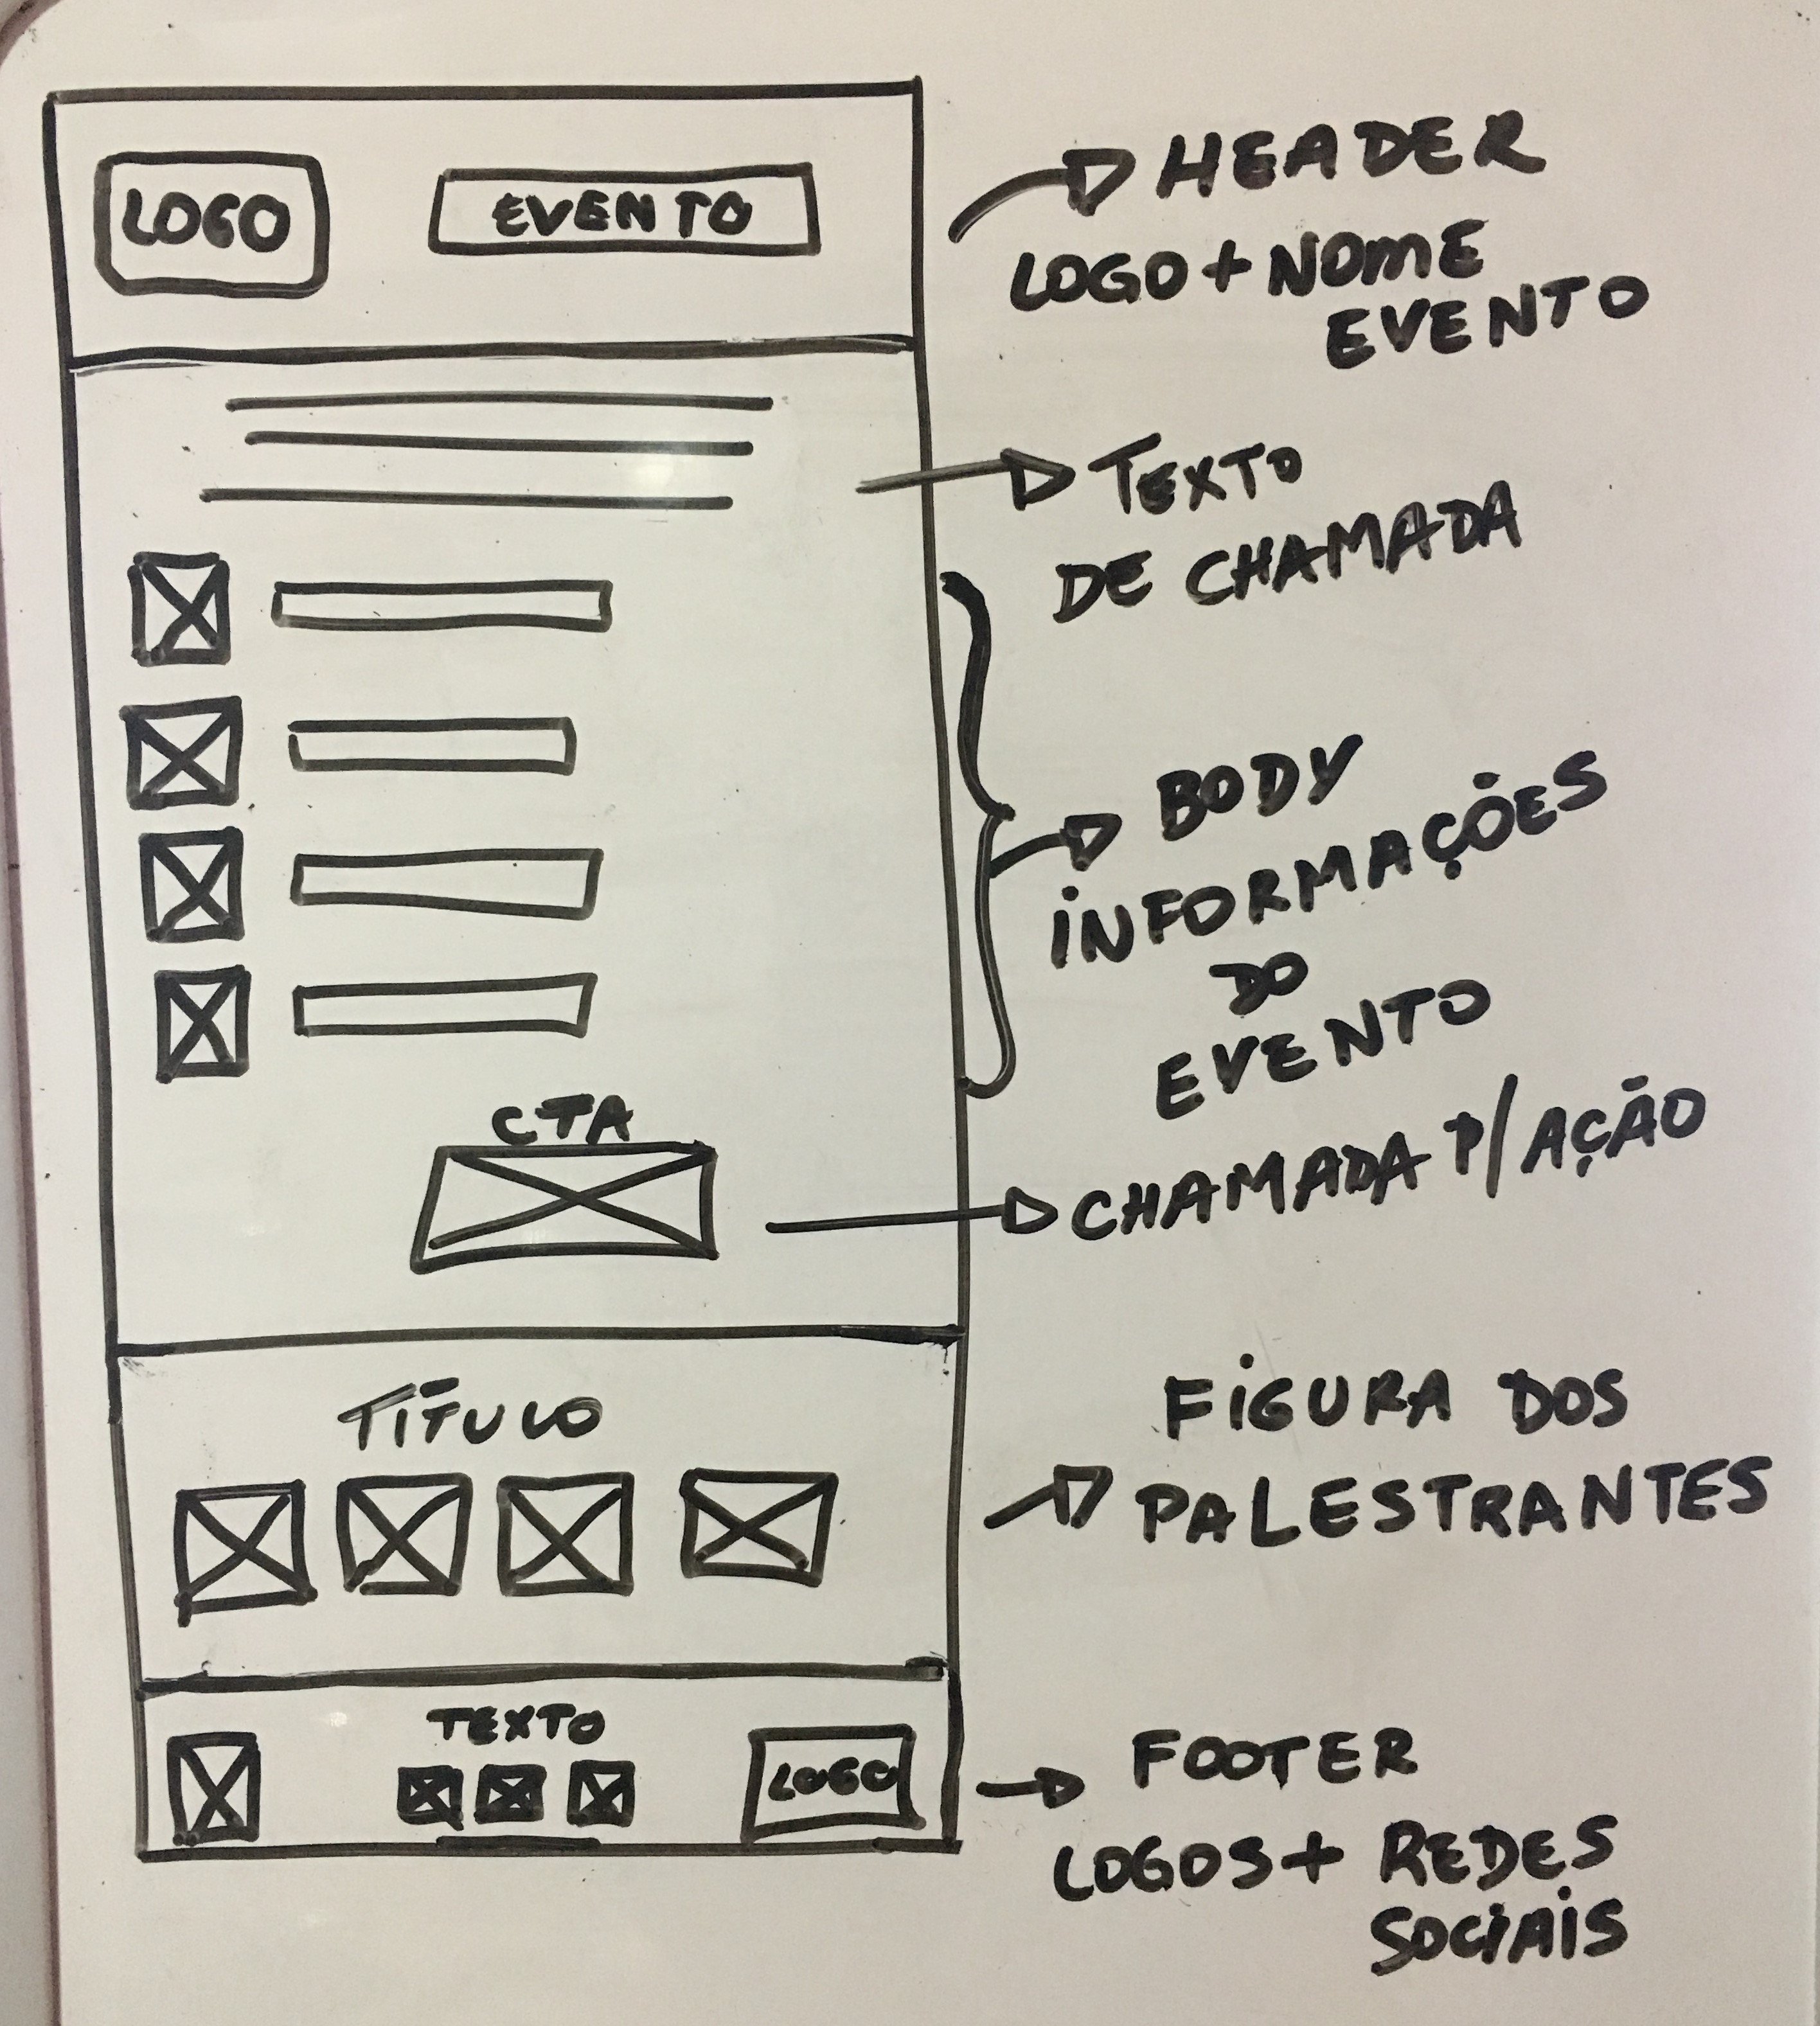 LOGO
EVENTO
HEADER
LOGO + NOME
EVENTO
TEXTO
DE CHAMADA
BODY
INFORMAÇÕES
DO
EVENTO
CTA
CHAMADA P/ AÇÃO
TÍTULO
FIGURA DOS
PALESTRANTES
TEXTO
LOGO
FOOTER
LOGOS + REDES
SOCIAIS